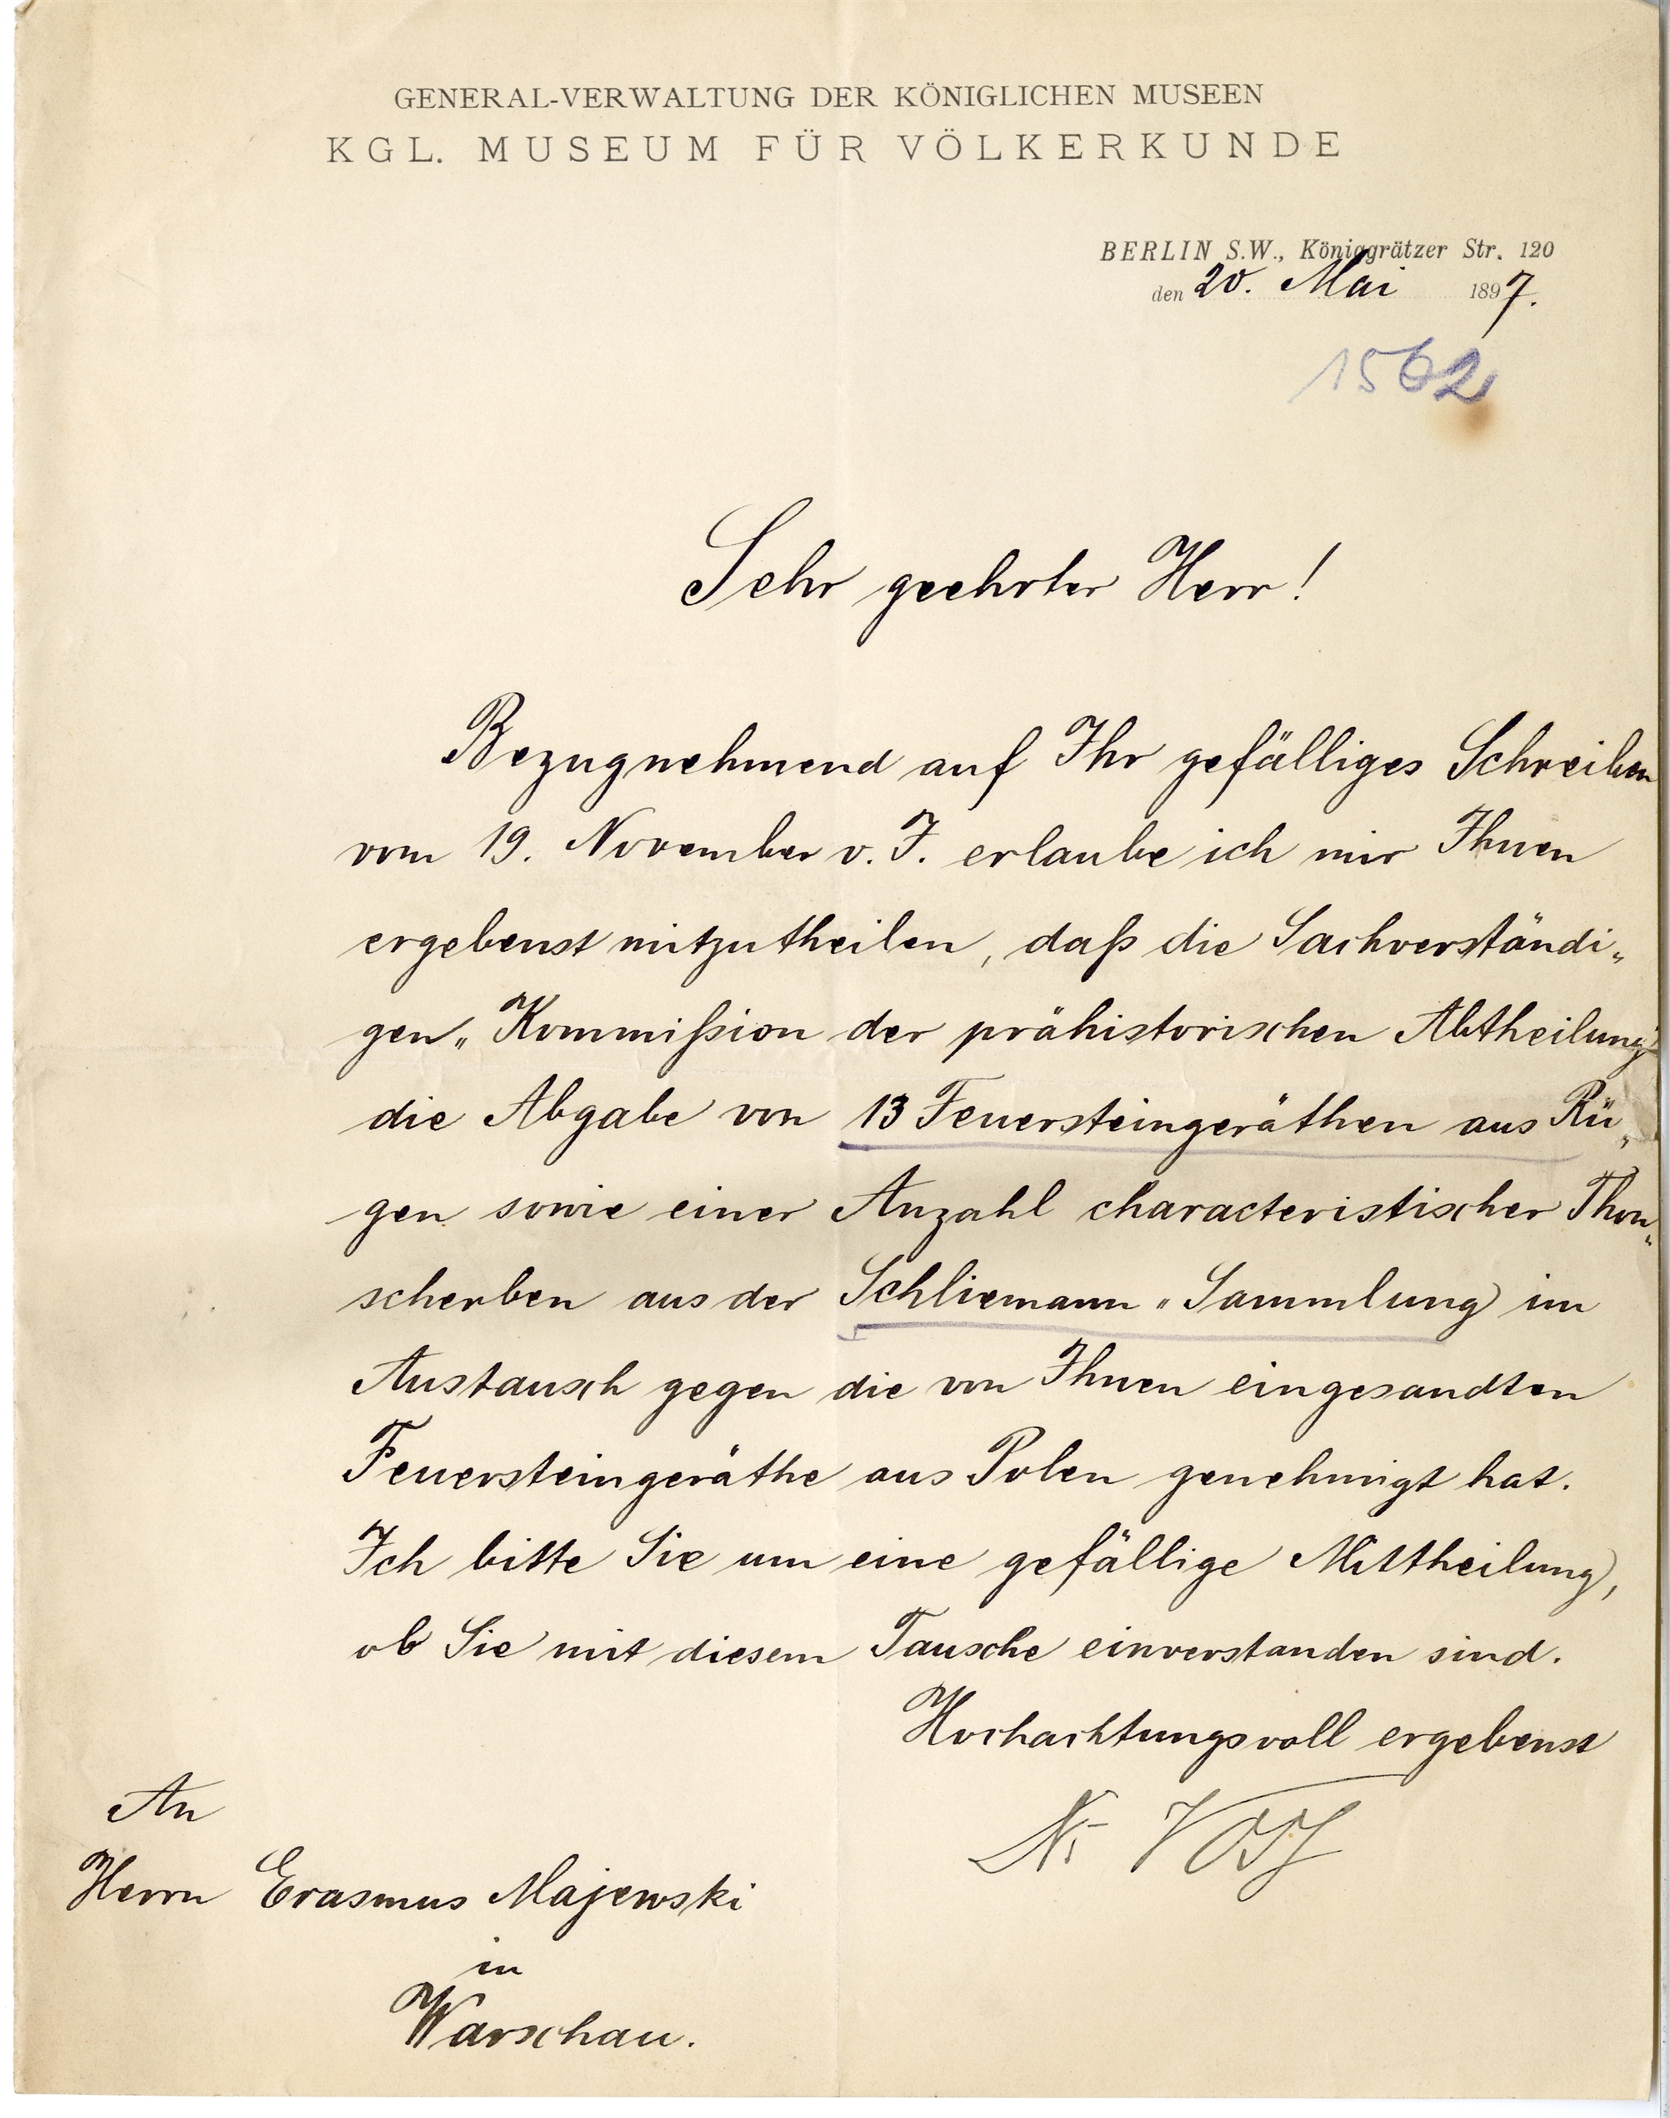 GENERAL-VERWALTUNG DER KÖNIGLICHEN MUSEEN
KGL. MUSEUM FÜR VÖLKERKUNDE
BERLIN S.W., Königgrätzer Str. 120
den 20. Mai 1897.
1562
Sehr geehrter Herr!
Bezugnehmend auf Ihr gefälliges Schreiben
vom 19. November v. J. erlaube ich mir Ihnen
ergebenst mitzutheilen, daß die Sachverständi„
gen„Kommißion der prähistorischen Abtheilung
die Abgabe von 13 Feuersteingeräthen aus Rü„
gen sowie einer Anzahl characteristischer Thon„
scherben aus der Schliemann„Sammlung im
Austausch gegen die von Ihnen eingesandten
Feuersteingeräthe aus Polen genehmigt hat.
Ich bitte Sie um eine gefällige Mittheilung,
ob Sie mit diesem Tausche einverstanden sind.
Hochachtungsvoll ergebenst
Voß
An
Herrn Erasmus Majewski
in
Warschau.